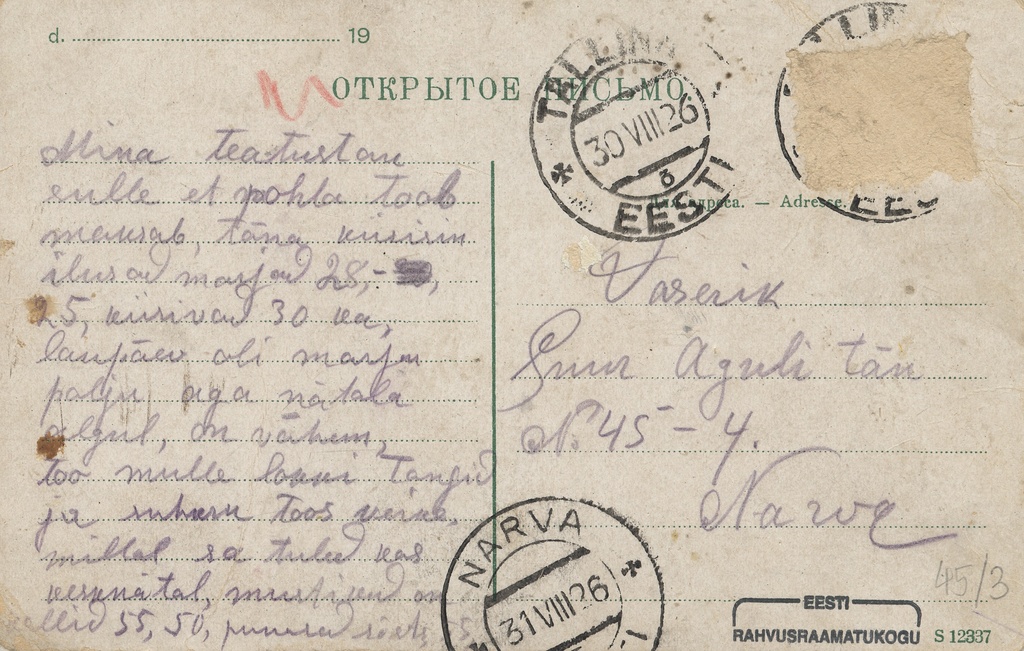 d. 19
ОТКРЫТОЕ ПИСЬМО
TALLINN
30 VIII 26
6
EESTI
TALLINN
EESTI
Для адреса. — Adresse.
Mina teatustan
sulle et pohla toob
maksab, täna küsisin
ilusad marjad 28,-
25, küsivad 30 ka,
laupäev oli marju
palju aga nätala
algul, on vähem,
too mulle lokki tangid
ja suhkru toos väike,
millal sa tuled kas
kesknätal, mustikad on
kallid 55, 50, punased
Vaserik
Suur Aguli tän
No 45 - 4.
Narva
NARVA
31 VIII 26
45/3
EESTI
RAHVUSRAAMATUKOGU
S 12337